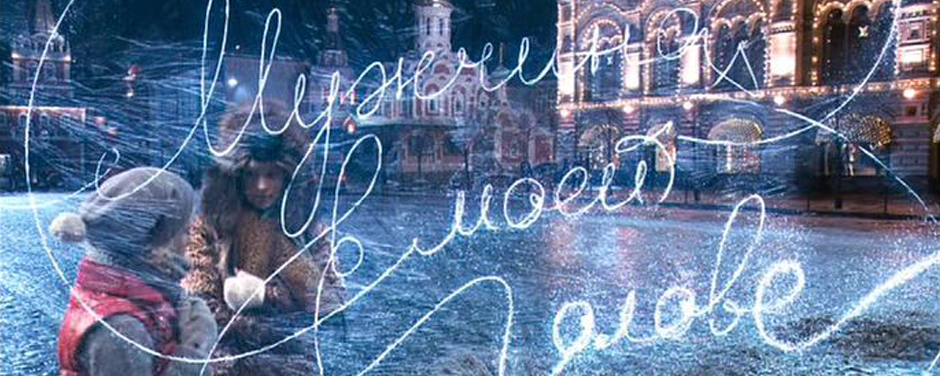 Мужчина
в моей
голове